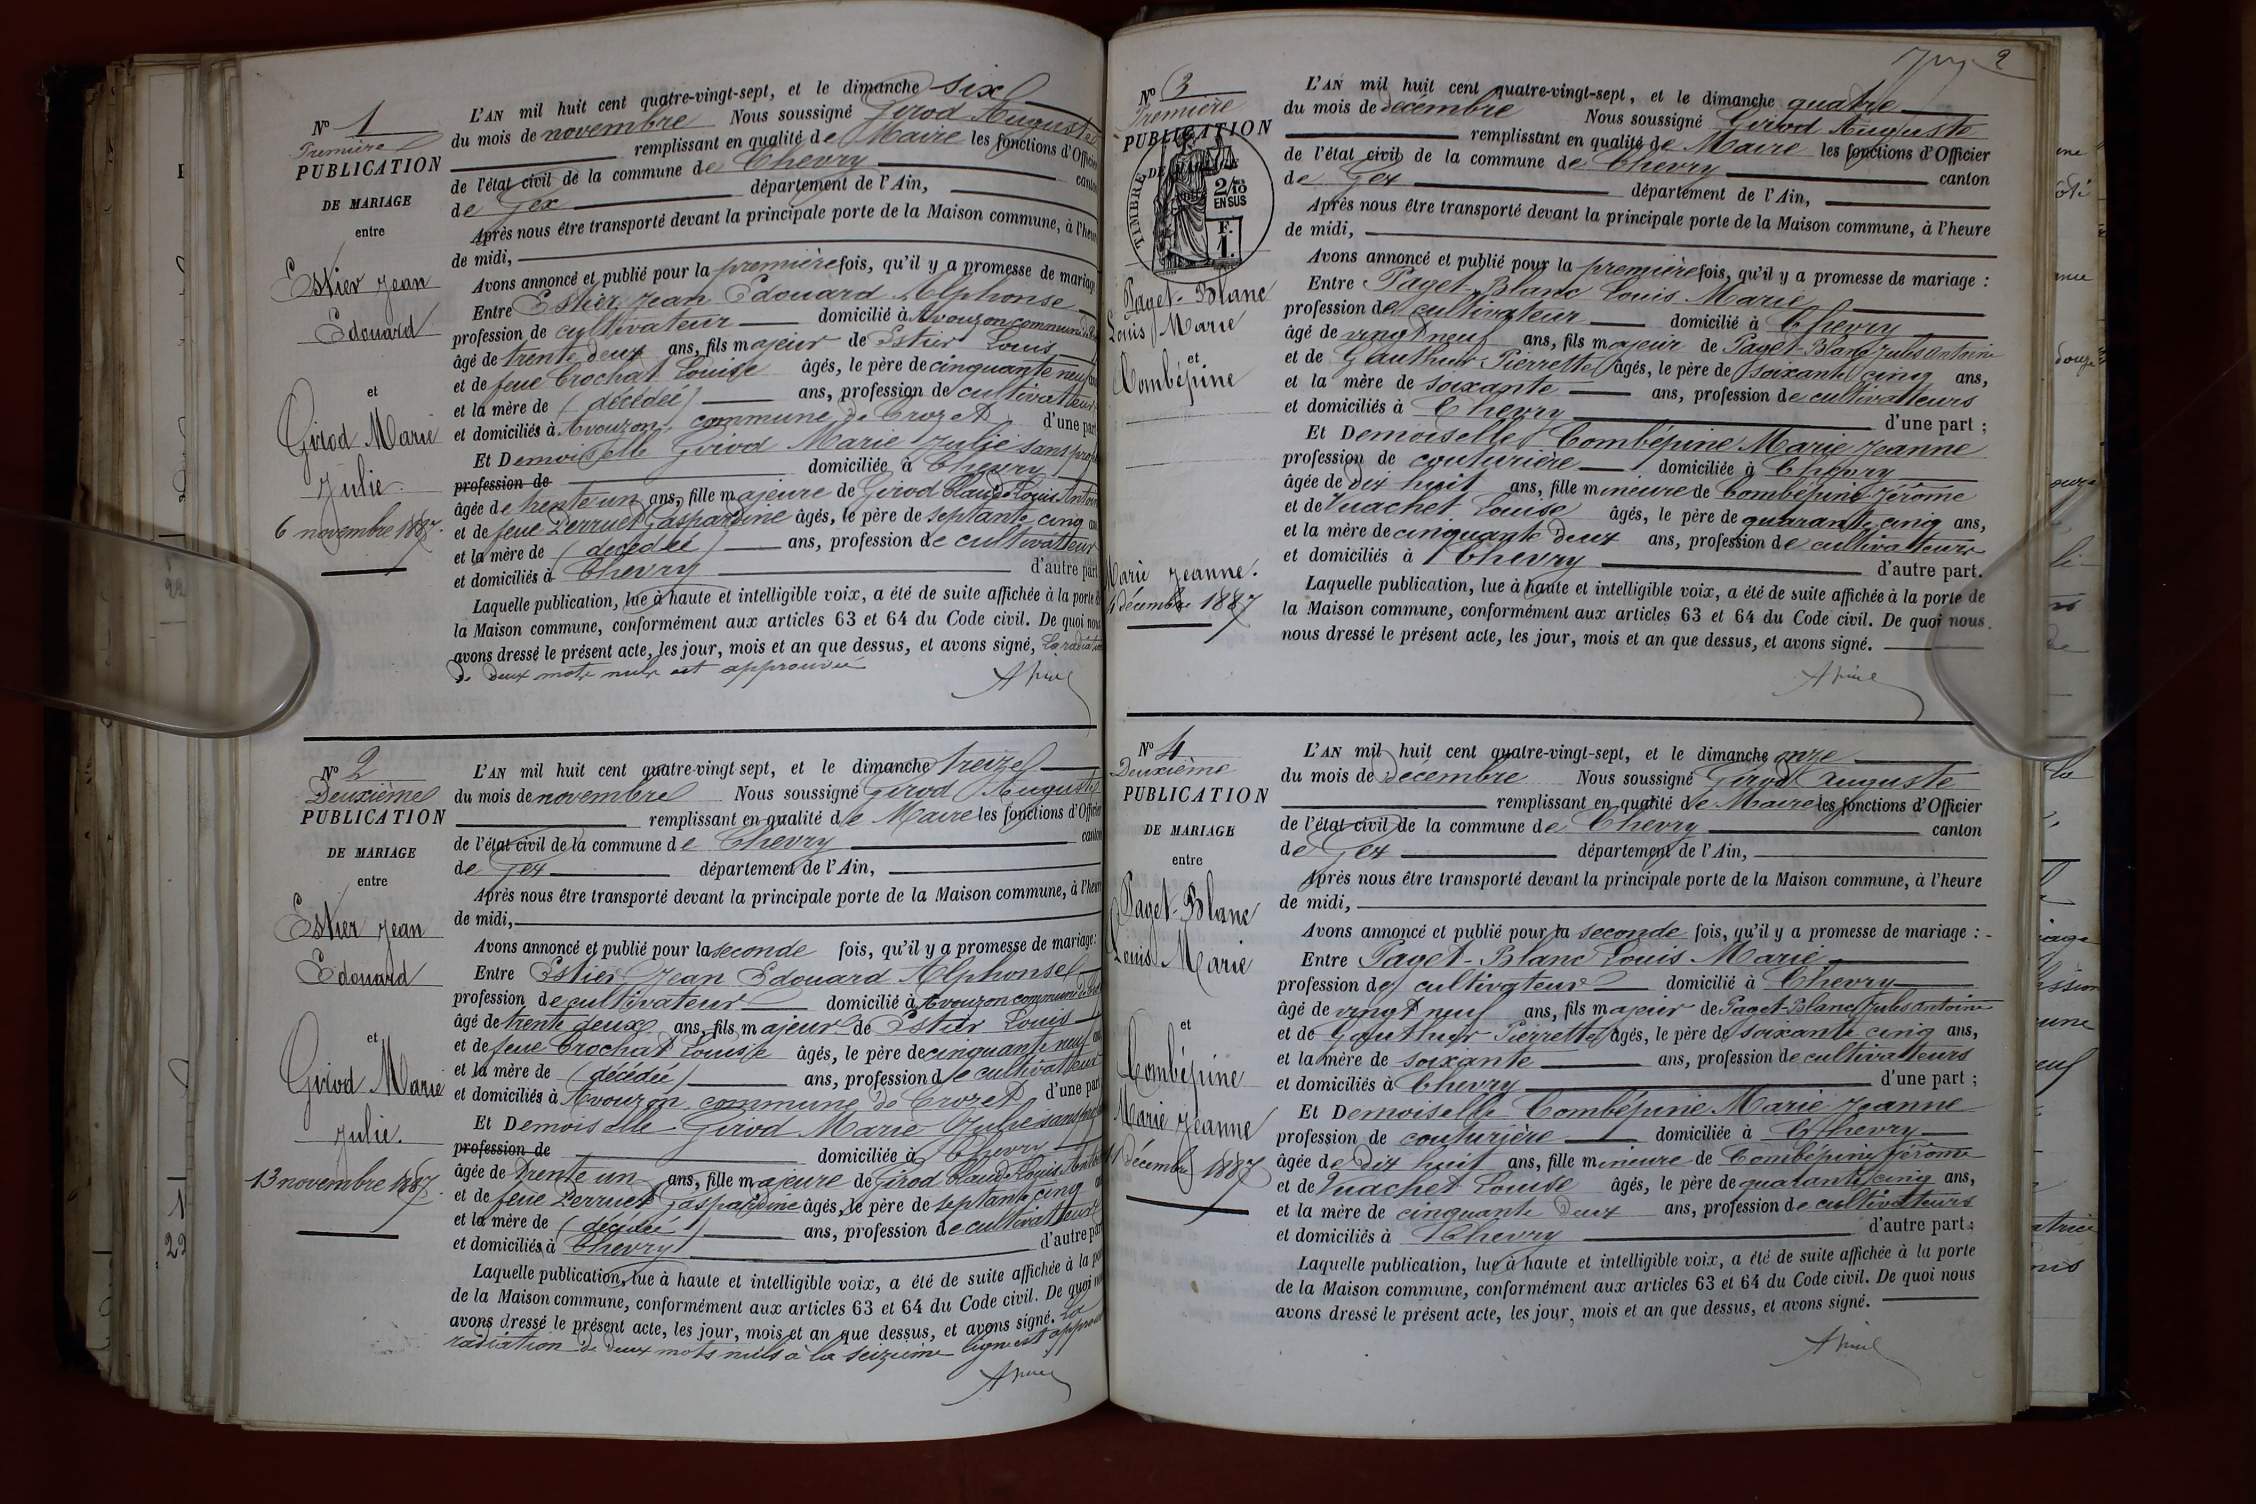 N° 1
Première
PUBLICATION
DE MARIAGE
entre
Estier Jean
Edouard
et
Girod Marie
Julie.
6 novembre 1887.
L'AN mil huit cent quatre-vingt-sept, et le dimanche six
du mois de novembre Nous soussigné Girod Auguste
remplissant en qualité de Maire les fonctions d'Officier
de l'état civil de la commune de Chevry canton
de Gex département de l'Ain,
Après nous être transporté devant la principale porte de la Maison commune, à l'heure
de midi,
Avons annoncé et publié pour la première fois, qu'il y a promesse de mariage
Entre Estier Jean Edouard Alphonse
profession de cultivateur domicilié à Avouzon commune de
âgé de trente deux ans, fils majeur de Estier Louis
et de feue Crochat Louise âgés, le père de cinquante neuf ans
et la mère de (décédée) ans, profession de cultivateur
et domiciliés à Avouzon, commune de Crozet d'une part
Et Demoiselle Girod Marie Julie sans prof
profession de domiciliée à Chevry
âgée de trente un ans, fille majeure de Girod Claude Louis Antoine
et de feue Perruet Gaspardine âgés, le père de septante cinq ans
et la mère de (décédée) ans, profession de cultivateur
et domiciliés à Chevry d'autre part
Laquelle publication, lue à haute et intelligible voix, a été de suite affichée à la porte de
la Maison commune, conformément aux articles 63 et 64 du Code civil. De quoi nous
avons dressé le présent acte, les jour, mois et an que dessus, et avons signé, La radiation
de deux mots nuls est approuvée
N° 2
Deuxième
PUBLICATION
DE MARIAGE
entre
Estier Jean
Edouard
et
Girod Marie
Julie.
13 novembre 1887.
L'AN mil huit cent quatre-vingt-sept, et le dimanche treize
du mois de novembre Nous soussigné Girod Auguste
remplissant en qualité de Maire les fonctions d'Officier
de l'état civil de la commune de Chevry canton
de Gex département de l'Ain,
Après nous être transporté devant la principale porte de la Maison commune, à l'heure
de midi,
Avons annoncé et publié pour la seconde fois, qu'il y a promesse de mariage:
Entre Estier Jean Edouard Alphonse
profession de cultivateur domicilié à Avouzon commune de
âgé de trente deux ans, fils majeur de Estier Louis
et de feue Crochat Louise âgés, le père de cinquante neuf ans
et la mère de (décédée) ans, profession de cultivateur
et domiciliés à Avouzon commune de Crozet d'une part
Et Demoiselle Girod Marie Julie sans prof
profession de domiciliée à Chevry
âgée de trente un ans, fille majeure de Girod Claude Louis Antoine
et de feue Perruet Gaspardine âgés, le père de septante cinq
et la mère de (décédée) ans, profession de cultivateur
et domiciliés à Chevry d'autre part
Laquelle publication, lue à haute et intelligible voix, a été de suite affichée à la porte
de la Maison commune, conformément aux articles 63 et 64 du Code civil. De quoi nous
avons dressé le présent acte, les jour, mois et an que dessus, et avons signé. La
radiation de deux mots nuls à la seizième ligne est approuvée
2
N° 3
Première
PUBLICATION
TIMBRE
2/10
EN SUS
F.
1.
Paget-Blanc
Louis Marie
et
Combépine
Marie Jeanne.
4 décembre 1887
L'AN mil huit cent quatre-vingt-sept, et le dimanche quatre
du mois de décembre Nous soussigné Girod Auguste
remplissant en qualité de Maire les fonctions d'Officier
de l'état civil de la commune de Chevry canton
de Gex département de l'Ain,
Après nous être transporté devant la principale porte de la Maison commune, à l'heure
de midi,
Avons annoncé et publié pour la première fois, qu'il y a promesse de mariage :
Entre Paget-Blanc Louis Marie
profession de cultivateur domicilié à Chevry
âgé de vingt neuf ans, fils majeur de Paget-Blanc Jules Antoine
et de Gauthier Pierrette âgés, le père de soixante cinq ans,
et la mère de soixante ans, profession de cultivateurs
et domiciliés à Chevry d'une part ;
Et Demoiselle Combépine Marie Jeanne
profession de couturière domiciliée à Chevry
âgée de dix huit ans, fille mineure de Combépine Jérôme
et de Vuachet Louise âgés, le père de quarante cinq ans,
et la mère de cinquante deux ans, profession de cultivateurs
et domiciliés à Chevry d'autre part.
Laquelle publication, lue à haute et intelligible voix, a été de suite affichée à la porte de
la Maison commune, conformément aux articles 63 et 64 du Code civil. De quoi nous
nous dressé le présent acte, les jour, mois et an que dessus, et avons signé.
N° 4
Deuxième
PUBLICATION
DE MARIAGE
entre
Paget-Blanc
Louis Marie
et
Combépine
Marie Jeanne
11 décembre 1887
L'AN mil huit cent quatre-vingt-sept, et le dimanche onze
du mois de décembre Nous soussigné Girod Auguste
remplissant en qualité de Maire les fonctions d'Officier
de l'état civil de la commune de Chevry canton
de Gex département de l'Ain,
Après nous être transporté devant la principale porte de la Maison commune, à l'heure
de midi,
Avons annoncé et publié pour la seconde fois, qu'il y a promesse de mariage :
Entre Paget-Blanc Louis Marie
profession de cultivateur domicilié à Chevry
âgé de vingt neuf ans, fils majeur de Paget-Blanc Jules Antoine
et de Gauthier Pierrette âgés, le père de soixante cinq ans,
et la mère de soixante ans, profession de cultivateurs
et domiciliés à Chevry d'une part ;
Et Demoiselle Combépine Marie Jeanne
profession de couturière domiciliée à Chevry
âgée de dix huit ans, fille mineure de Combépine Jérôme
et de Vuachet Louise âgés, le père de quarante cinq ans,
et la mère de cinquante deux ans, profession de cultivateurs
et domiciliés à Chevry d'autre part.
Laquelle publication, lue à haute et intelligible voix, a été de suite affichée à la porte
de la Maison commune, conformément aux articles 63 et 64 du Code civil. De quoi nous
avons dressé le présent acte, les jour, mois et an que dessus, et avons signé.